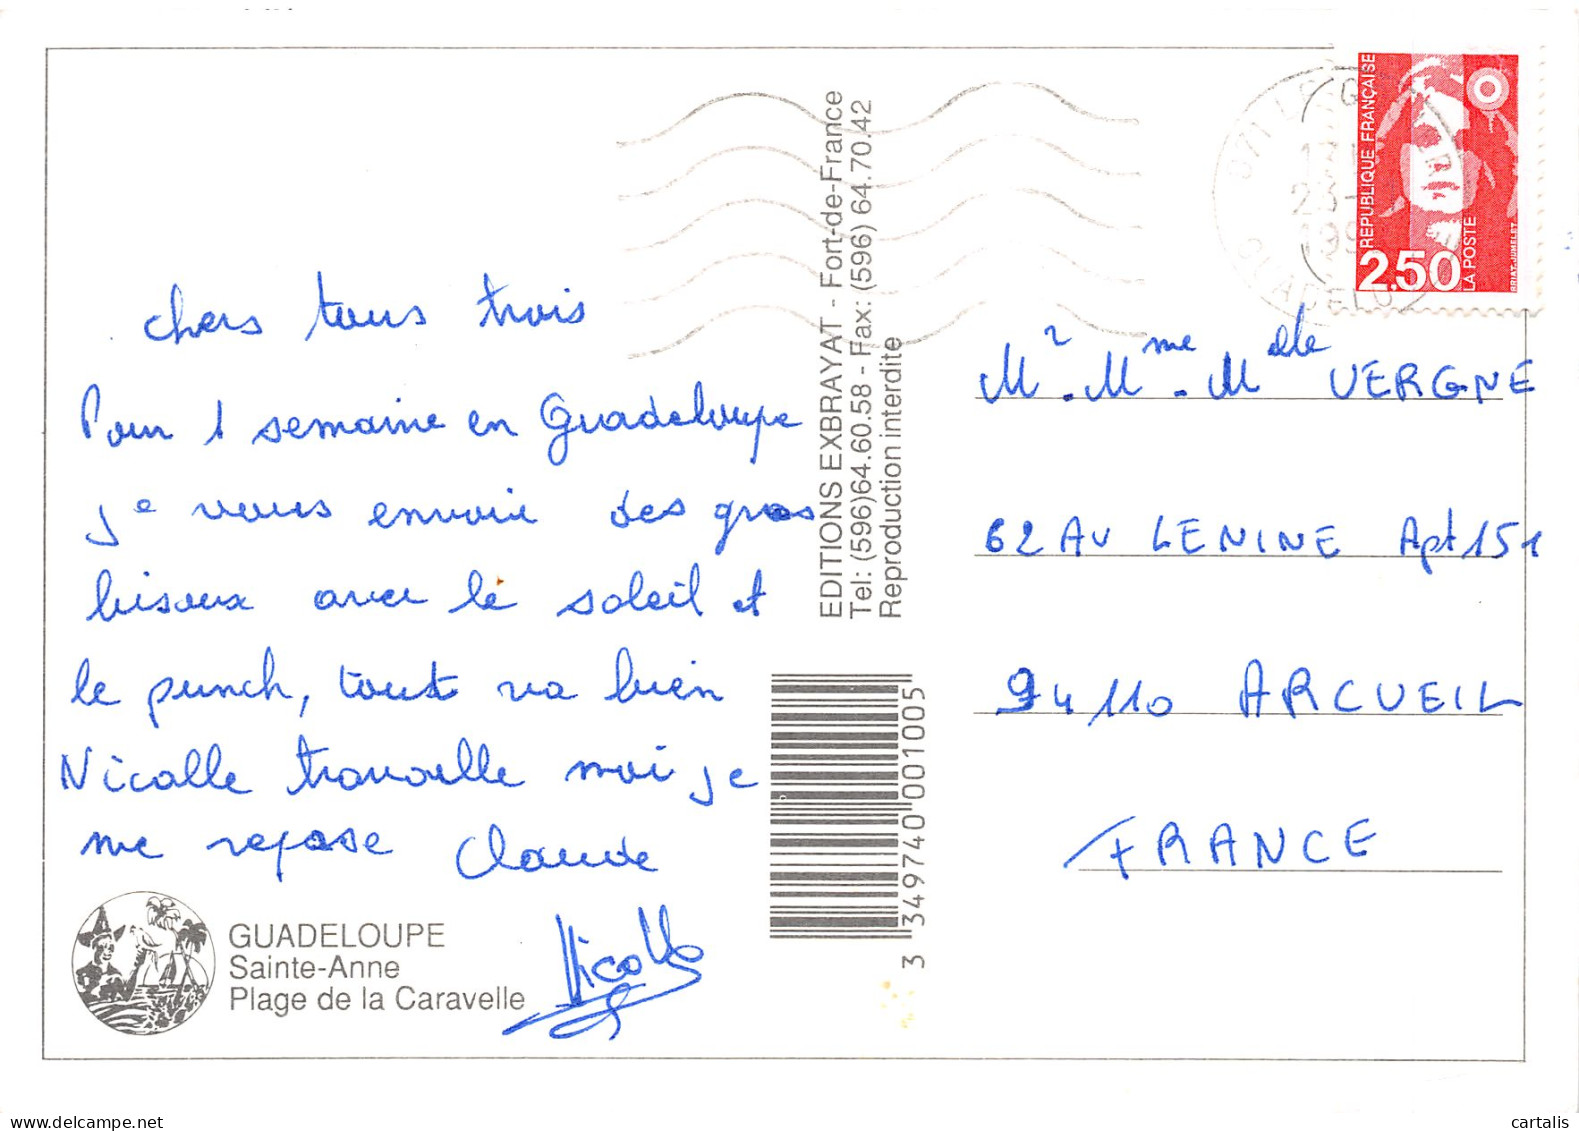 chers tous trois
Pour 1 semaine en Guadeloupe
je vous envoie des gros
bisoux avec le soleil et
le punch, tout va bien
Nicolle travaille moi je
me repose Claude
Nicolle
GUADELOUPE
Sainte-Anne
Plage de la Caravelle
EDITIONS EXBRAYAT - Fort-de-France
Tel: (596)64.60.58 - Fax: (596) 64.70.42
Reproduction interdite
3 349740 001005
REPUBLIQUE FRANÇAISE
2,50
LA POSTE
BRIAT-JUMELET
Mr. Mme. Melle VERGNE
62 AV LENINE Apt 151
94110 ARCUEIL
FRANCE
www.delcampe.net
cartalis